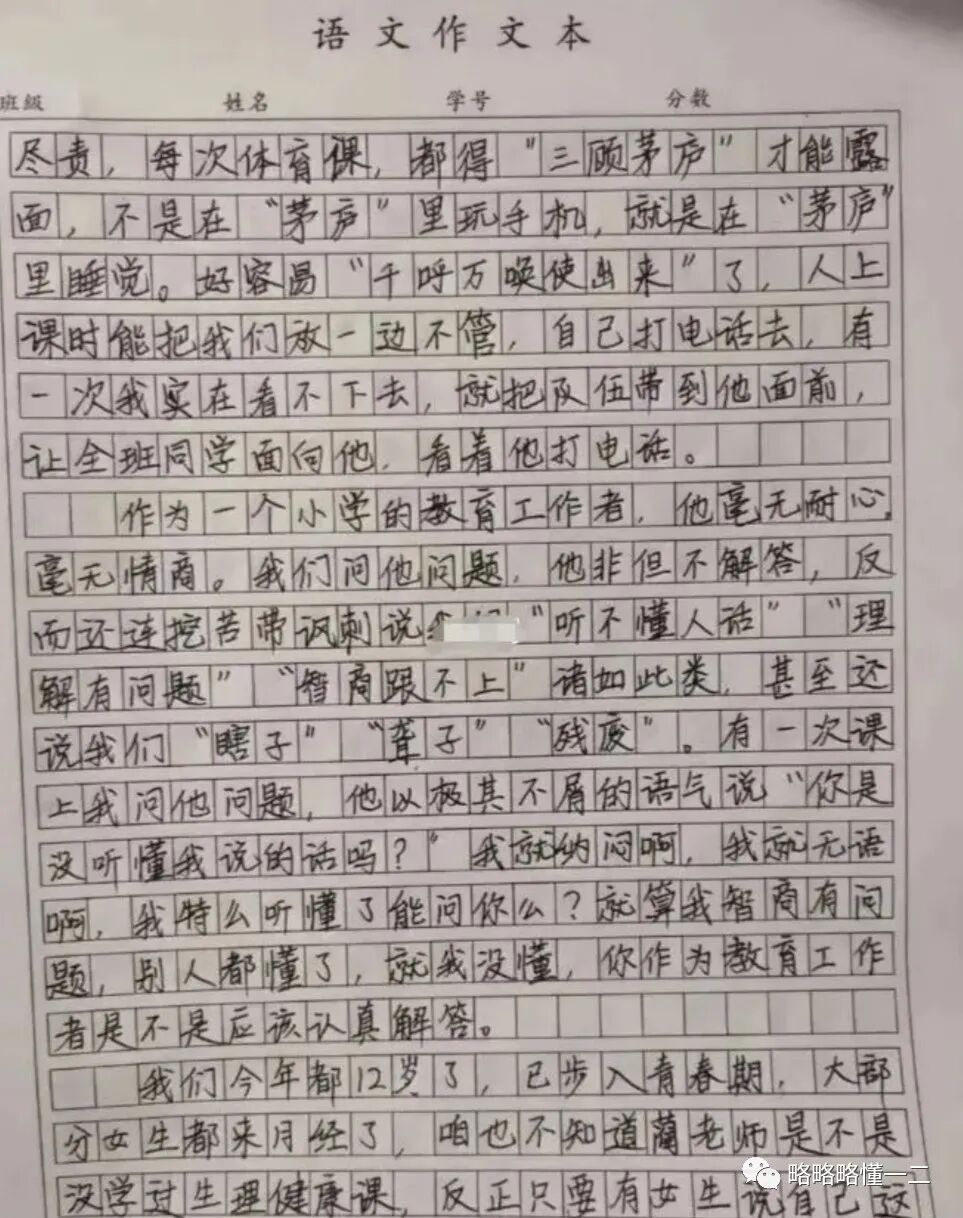 语文作文本
班级 姓名 学号 分数
尽责，每次体育课，都得“三顾茅庐”才能露
面，不是在“茅庐”里玩手机，就是在“茅庐”
里睡觉。好容易“千呼万唤使出来”了，人上
课时能把我们放一边不管，自己打电话去，有
一次我实在看不下去，就把队伍带到他面前，
让全班同学面向他，看着他打电话。
作为一个小学的教育工作者，他毫无耐心，
毫无情商。我们问他问题，他非但不解答，反
而还连挖苦带讽刺说“听不懂人话”“理
解有问题”“智商跟不上”诸如此类，甚至还
说我们“瞎子”“聋子”“残废”。有一次课
上我问他问题，他以极其不屑的语气说“你是
没听懂我说的话吗？”我就纳闷啊，我就无语
啊，我特么听懂了能问你么？就算我智商有问
题，别人都懂了，就我没懂，你作为教育工作
者是不是应该认真解答。
我们今年都12岁了，已步入青春期，大部
分女生都来月经了，咱也不知道蔺老师是不是
没学过生理健康课，反正只要有女生说自己这
略略略懂一二